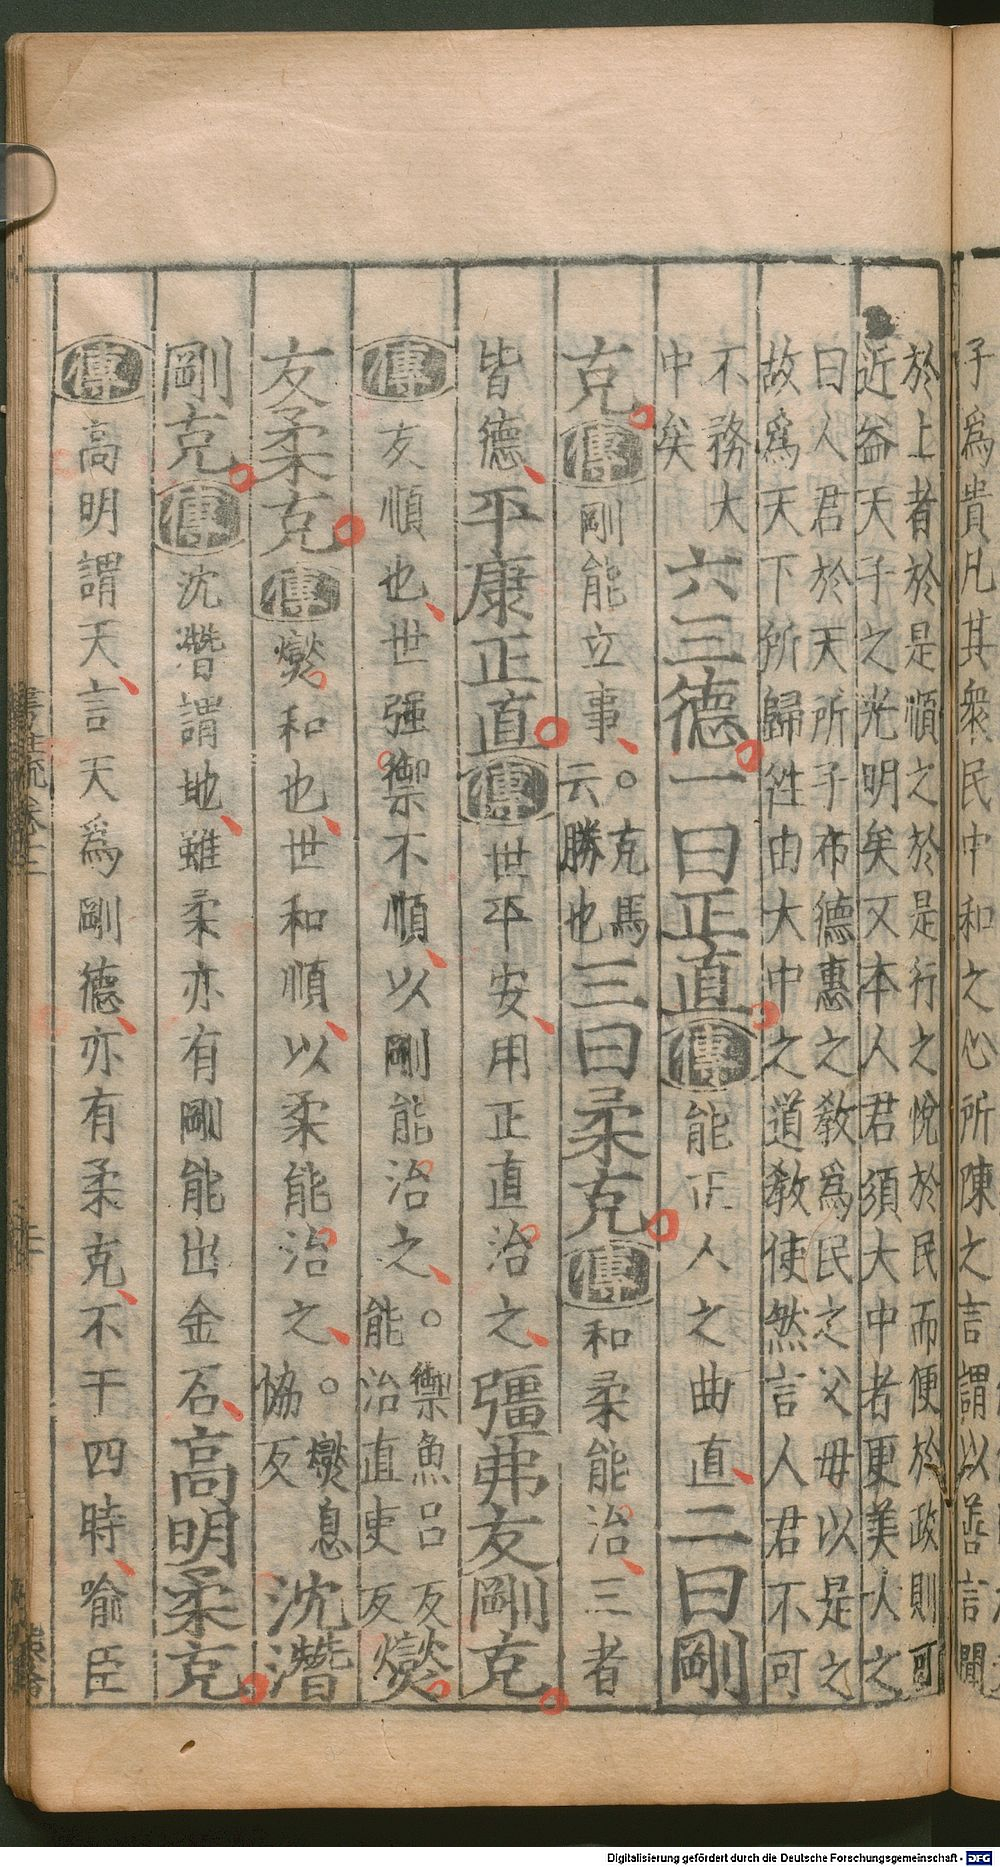 子爲貴凡其衆民中和之心所陳之言謂以善言聞
於上者於是順之於是行之悅於民而便於政則可
近益天子之光明矣又本人君須大中者更美大之
曰人君於天所子布德惠之教爲民之父母以是之
故爲天下所歸往由大中之道教使然言人君不可
不務大
中矣
六三德一曰正直傳能正人之曲直二曰剛
克傳剛能立事。克馬
云勝也
三曰柔克傳和柔能治三者
皆德平康正直傳世平安用正直治之彊弗友剛克
傳友順也世强禦不順以剛能治之。禦魚呂反
能治直吏反
燮
友柔克傳燮和也世和順以柔能治之。燮息
協反
沈潛
剛克傳沈潛謂地雖柔亦有剛能出金石高明柔克
傳高明謂天言天爲剛德亦有柔克不干四時喻臣
書註疏卷十二
Digitalisierung gefördert durch die Deutsche Forschungsgemeinschaft - DFG